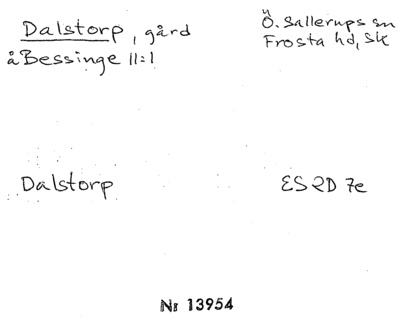 Dalstorp, gård
Ö. Sallerups sn
å Bessinge 11:1
Frosta hd, Sk
Dalstorp
ES 2D 7e
Nr 13954